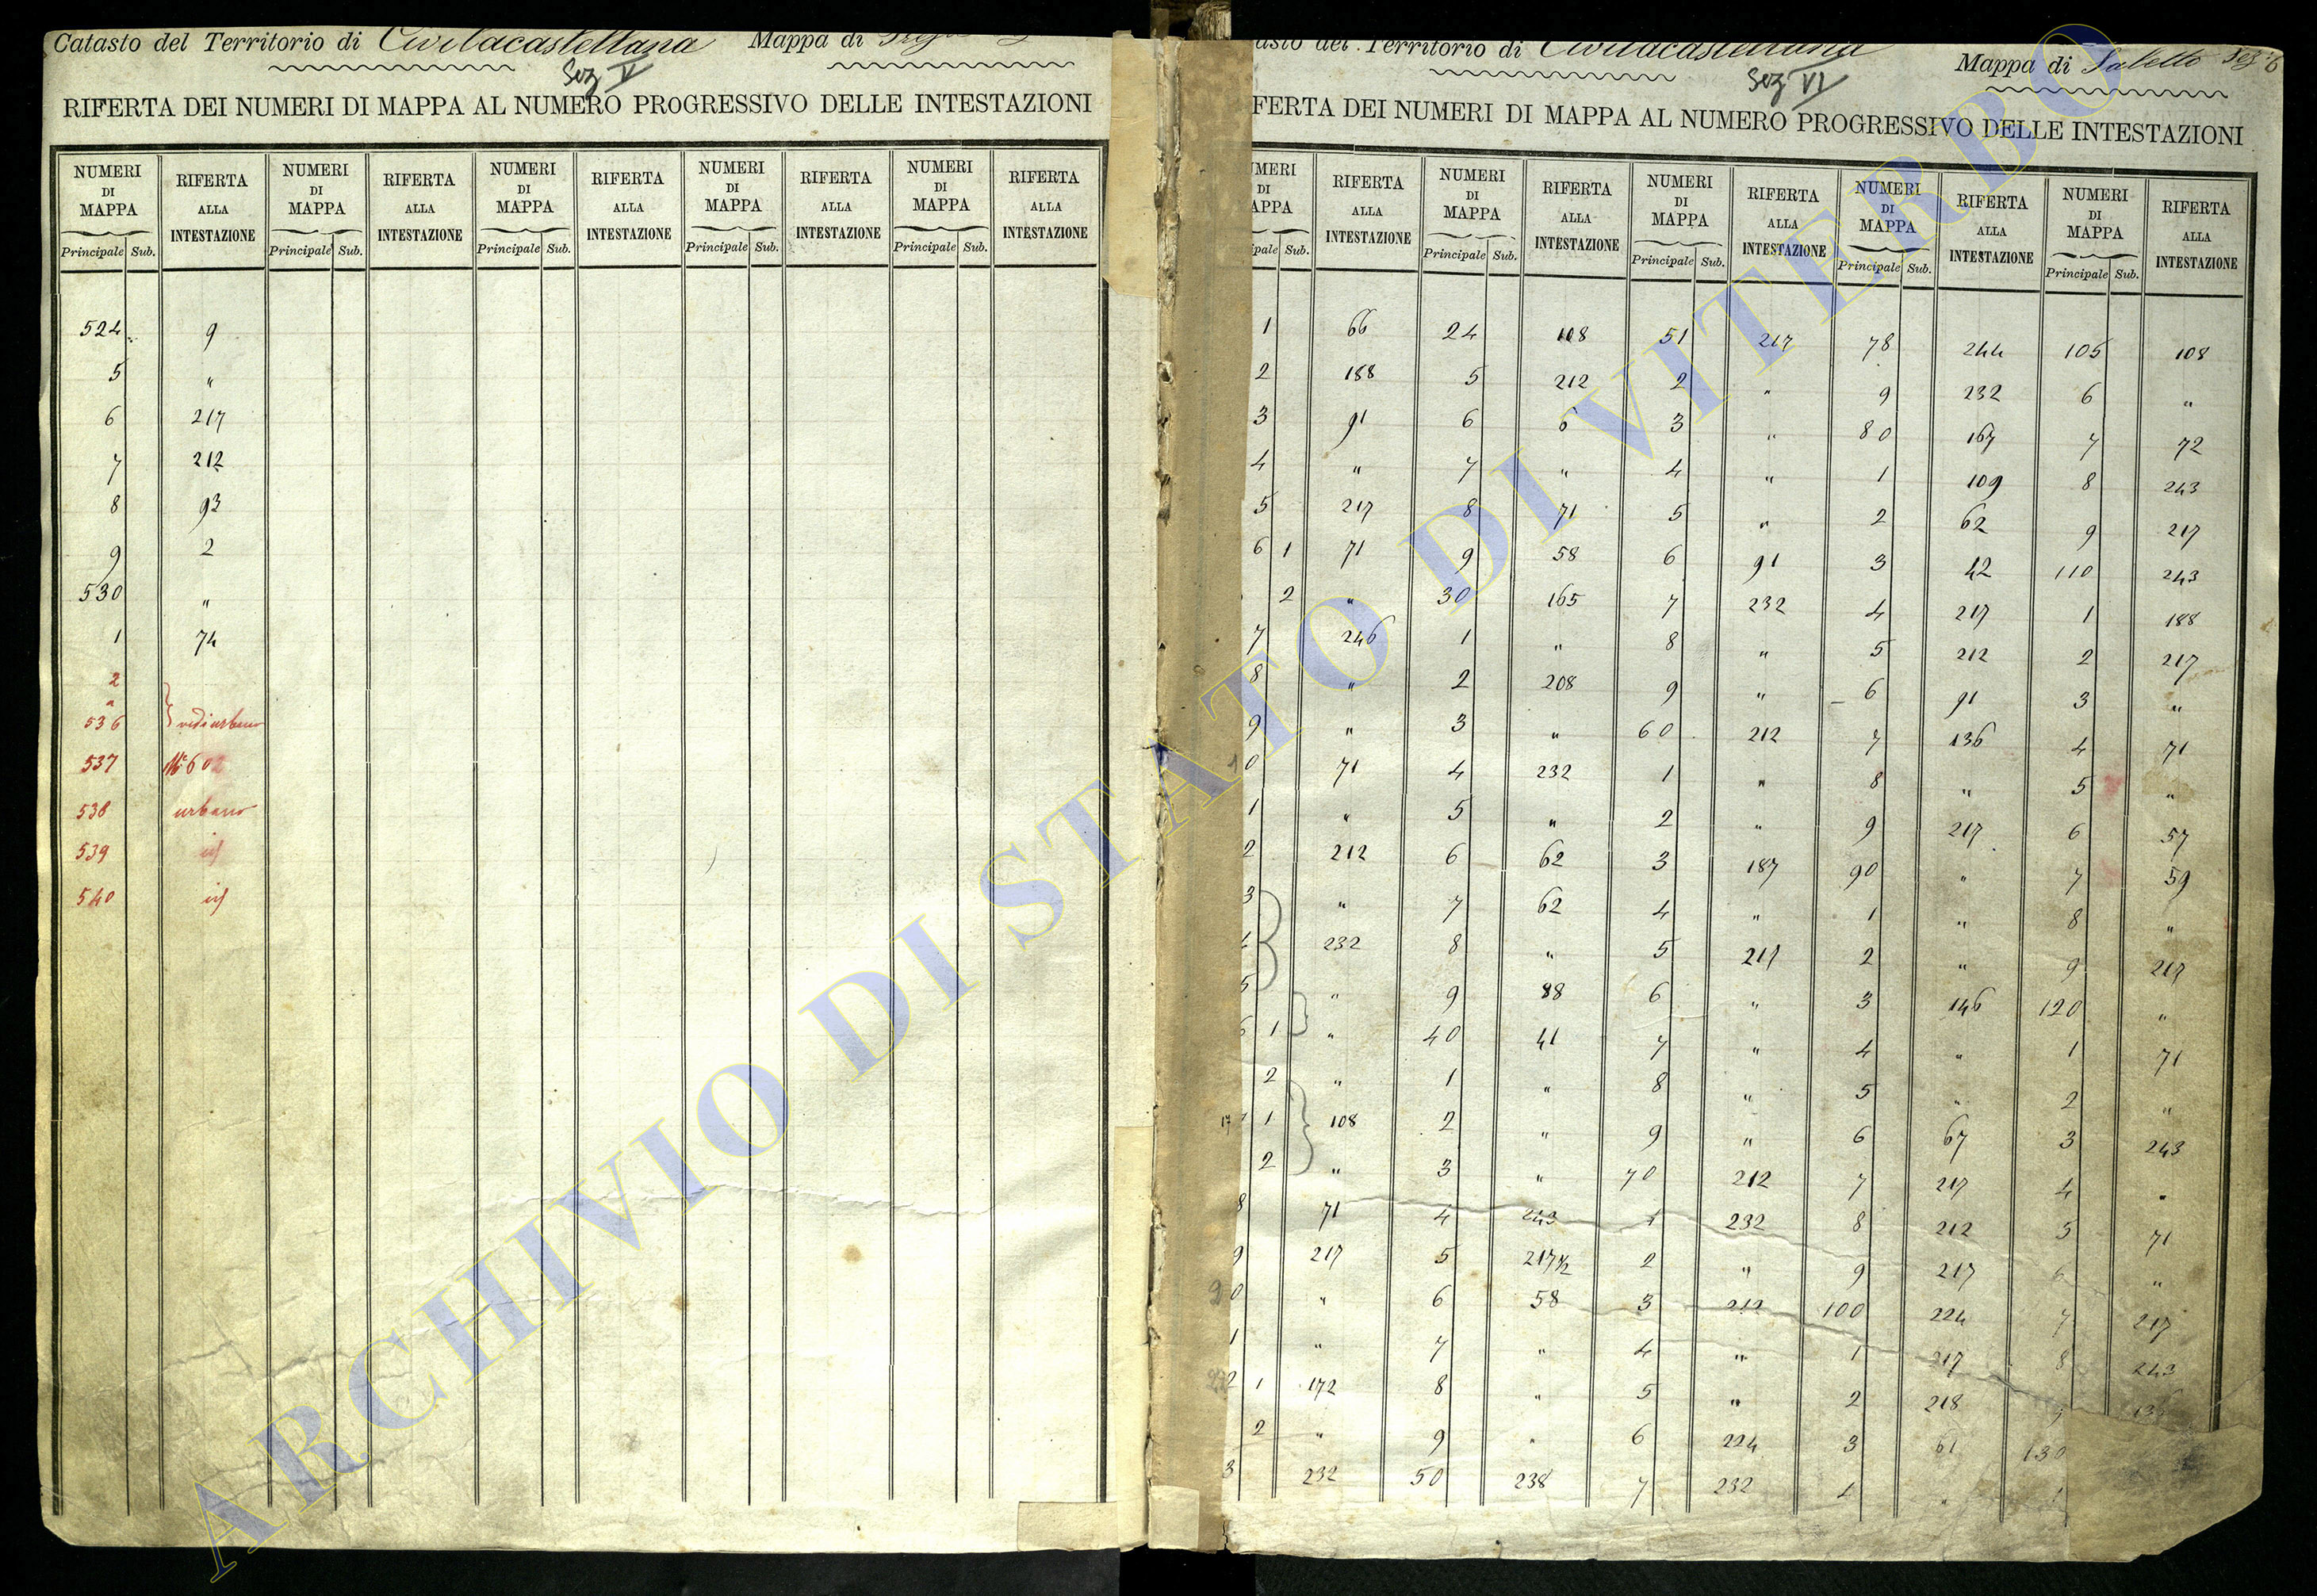 Catasto del Territorio di Civitacastellana Mappa di
Sez V
RIFERTA DEI NUMERI DI MAPPA AL NUMERO PROGRESSIVO DELLE INTESTAZIONI
NUMERI DI MAPPA RIFERTA ALLA INTESTAZIONE NUMERI DI MAPPA RIFERTA ALLA INTESTAZIONE NUMERI DI MAPPA RIFERTA ALLA INTESTAZIONE NUMERI DI MAPPA RIFERTA ALLA INTESTAZIONE NUMERI DI MAPPA RIFERTA ALLA INTESTAZIONE
Principale Sub. Principale Sub. Principale Sub. Principale Sub. Principale Sub.
524 9
5 "
6 217
7 212
8 93
9 2
530 "
1 74
2
a
536 vedi urbano
537 N° 602
538 urbano
539 id
540 id
asto del Territorio di Civitacastellana Mappa di Sez 6
Sez VI
FERTA DEI NUMERI DI MAPPA AL NUMERO PROGRESSIVO DELLE INTESTAZIONI
MERI DI APPA RIFERTA ALLA INTESTAZIONE NUMERI DI MAPPA RIFERTA ALLA INTESTAZIONE NUMERI DI MAPPA RIFERTA ALLA INTESTAZIONE NUMERI DI MAPPA RIFERTA ALLA INTESTAZIONE NUMERI DI MAPPA RIFERTA ALLA INTESTAZIONE
pale Sub. Principale Sub. Principale Sub. Principale Sub. Principale Sub.
1 66 24 108 51 217 78 244 105 108
2 188 5 212 2 " 9 232 6 "
3 91 6 6 3 " 80 167 7 72
4 " 7 " 4 " 1 109 8 243
5 217 8 71 5 " 2 62 9 217
6 1 71 9 58 6 91 3 42 110 243
2 " 30 165 7 232 4 217 1 188
7 246 1 " 8 " 5 212 2 217
8 " 2 208 9 " 6 91 3 "
9 " 3 " 60 212 7 136 4 71
10 71 4 232 1 " 8 " 5 "
1 " 5 " 2 " 9 217 6 57
2 212 6 62 3 187 90 " 7 59
3 " 7 62 4 " 1 " 8 "
4 232 8 " 5 217 2 " 9 217
5 " 9 88 6 " 3 146 120 "
6 1 " 40 41 7 " 4 " 1 71
2 " 1 " 8 " 5 " 2 "
17 1 108 2 " 9 " 6 67 3 243
2 " 3 " 70 212 7 217 4 "
8 71 4 243 1 232 8 212 5 71
9 217 5 217 1/2 2 " 9 217 6 "
20 " 6 58 3 212 100 224 7 217
1 " 7 " 4 " 1 217 8 243
22 1 172 8 " 5 " 2 218
2 " 9 " 6 224 3 61 130
3 232 50 238 7 232 4 " 1
ARCHIVIO DI STATO DI VITERBO